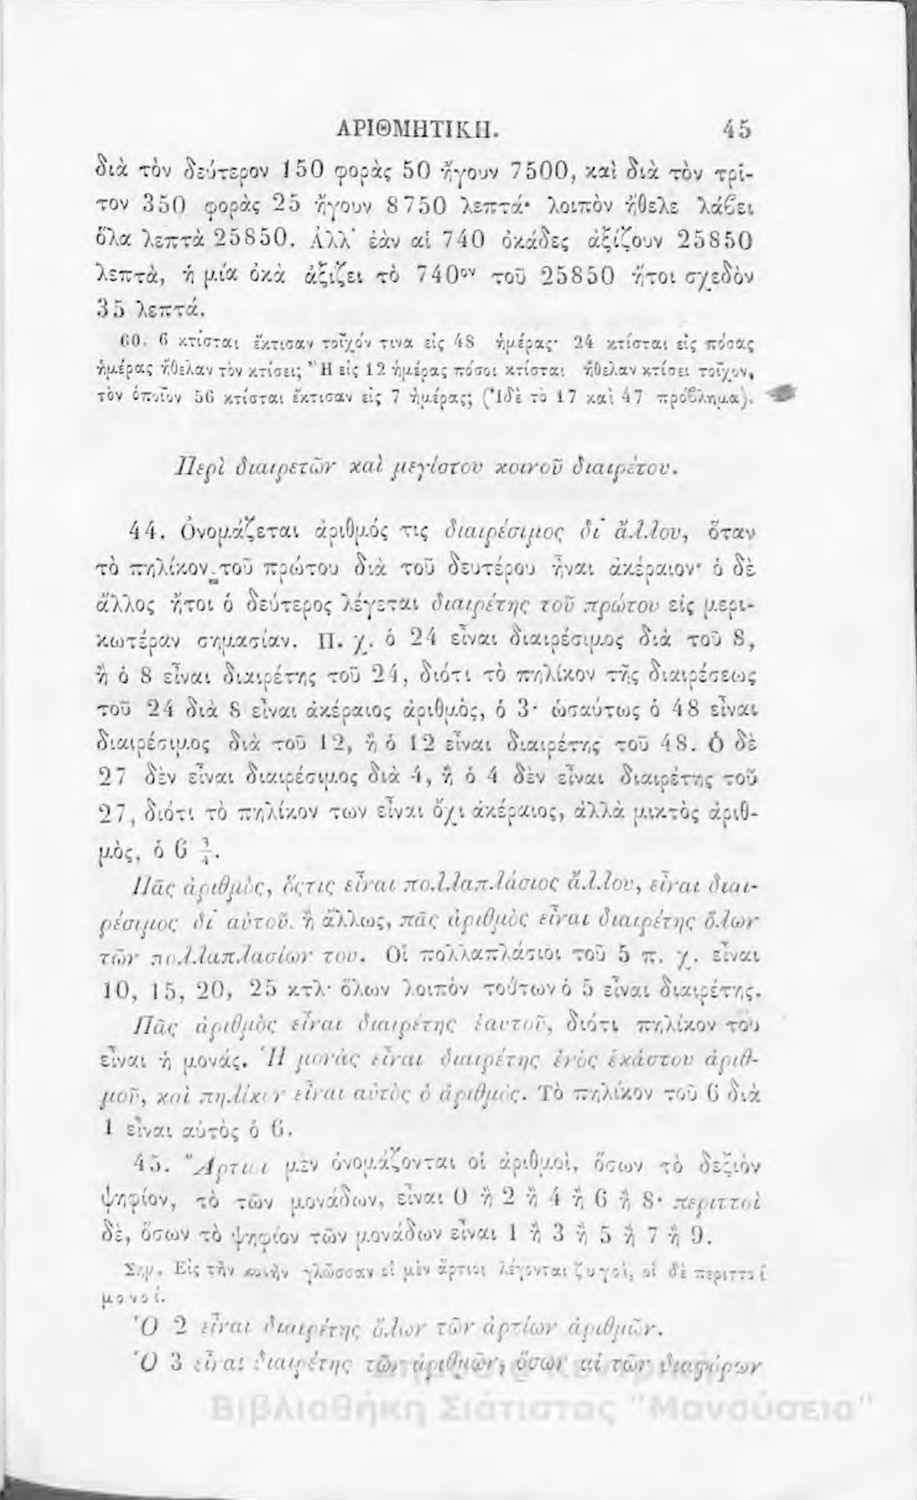 ΑΡΙΘΜΗΤΙΚΗ. 45
διὰ τὸν δεύτερον 150 φορὰς 50 ἤγουν 7500, καὶ διὰ τὸν τρί-
τον 350 φορὰς 25 ἤγουν 8750 λεπτά· λοιπὸν ἤθελε λάβει
ὅλα λεπτὰ 25850. Ἀλλ' ἐὰν αἱ 740 ὀκάδες ἀξίζουν 25850
λεπτὰ, ἡ μία ὀκὰ ἀξίζει τὸ 740ον τοῦ 25850 ἤτοι σχεδὸν
35 λεπτά.
60. 6 κτίσται ἔκτισαν τοῖχόν τινα εἰς 48 ἡμέρας· 24 κτίσται εἰς πόσας
ἡμέρας ἤθελαν τὸν κτίσει; Ἢ εἰς 12 ἡμέρας πόσοι κτίσται ἤθελαν κτίσει τοῖχον,
τὸν ὁποῖον 56 κτίσται ἔκτισαν εἰς 7 ἡμέρας; (Ἰδὲ τὸ 17 καὶ 47 πρόβλημα).
Περὶ διαιρετῶν καὶ μεγίστου κοινοῦ διαιρέτου.
44. Ὀνομάζεται ἀριθμός τις διαιρέσιμος δι' ἄλλου, ὅταν
τὸ πηλίκον τοῦ πρώτου διὰ τοῦ δευτέρου ἦναι ἀκέραιον· ὁ δὲ
ἄλλος ἤτοι ὁ δεύτερος λέγεται διαιρέτης τοῦ πρώτου εἰς μερι-
κωτέραν σημασίαν. Π. χ. ὁ 24 εἶναι διαιρέσιμος διὰ τοῦ 8,
ἢ ὁ 8 εἶναι διαιρέτης τοῦ 24, διότι τὸ πηλίκον τῆς διαιρέσεως
τοῦ 24 διὰ 8 εἶναι ἀκέραιος ἀριθμὸς, ὁ 3· ὡσαύτως ὁ 48 εἶναι
διαιρέσιμος διὰ τοῦ 12, ἢ ὁ 12 εἶναι διαιρέτης τοῦ 48. Ὁ δὲ
27 δὲν εἶναι διαιρέσιμος διὰ 4, ἢ ὁ 4 δὲν εἶναι διαιρέτης τοῦ
27, διότι τὸ πηλίκον των εἶναι ὄχι ἀκέραιος, ἀλλὰ μικτὸς ἀριθ-
μὸς, ὁ 6 3/4.
Πᾶς ἀριθμὸς, ὅςτις εἶναι πολλαπλάσιος ἄλλου, εἶναι διαι-
ρέσιμος δι' αὐτοῦ, ἢ ἄλλως, πᾶς ἀριθμὸς εἶναι διαιρέτης ὅλων
τῶν πολλαπλασίων του. Οἱ πολλαπλάσιοι τοῦ 5 π. χ. εἶναι
10, 15, 20, 25 κτλ· ὅλων λοιπὸν τούτων ὁ 5 εἶναι διαιρέτης.
Πᾶς ἀριθμὸς εἶναι διαιρέτης ἑαυτοῦ, διότι πηλίκον του
εἶναι ἡ μονάς. Ἡ μονὰς εἶναι διαιρέτης ἑνὸς ἑκάστου ἀριθ-
μοῦ, καὶ πηλίκον εἶναι αὐτὸς ὁ ἀριθμός. Τὸ πηλίκον τοῦ 6 διὰ
1 εἶναι αὐτὸς ὁ 6.
45. Ἄρτιοι μὲν ὀνομάζονται οἱ ἀριθμοὶ, ὅσων τὸ δεξιὸν
ψηφίον, τὸ τῶν μονάδων, εἶναι 0 ἢ 2 ἢ 4 ἢ 6 ἢ 8· περιττοὶ
δὲ, ὅσων τὸ ψηφίον τῶν μονάδων εἶναι 1 ἢ 3 ἢ 5 ἢ 7 ἢ 9.
Σημ. Εἰς τὴν κοινὴν γλῶσσαν οἱ μὲν ἄρτιοι λέγονται ζυγοὶ, οἱ δὲ περιττοὶ
μονοί.
Ὁ 2 εἶναι διαιρέτης ὅλων τῶν ἀρτίων ἀριθμῶν.
Ὁ 3 εἶναι διαιρέτης τῶν ἀριθμῶν, ὅσων αἱ τῶν διαφόρων
Βιβλιοθήκη Σιάτιστας "Μανούσεια"